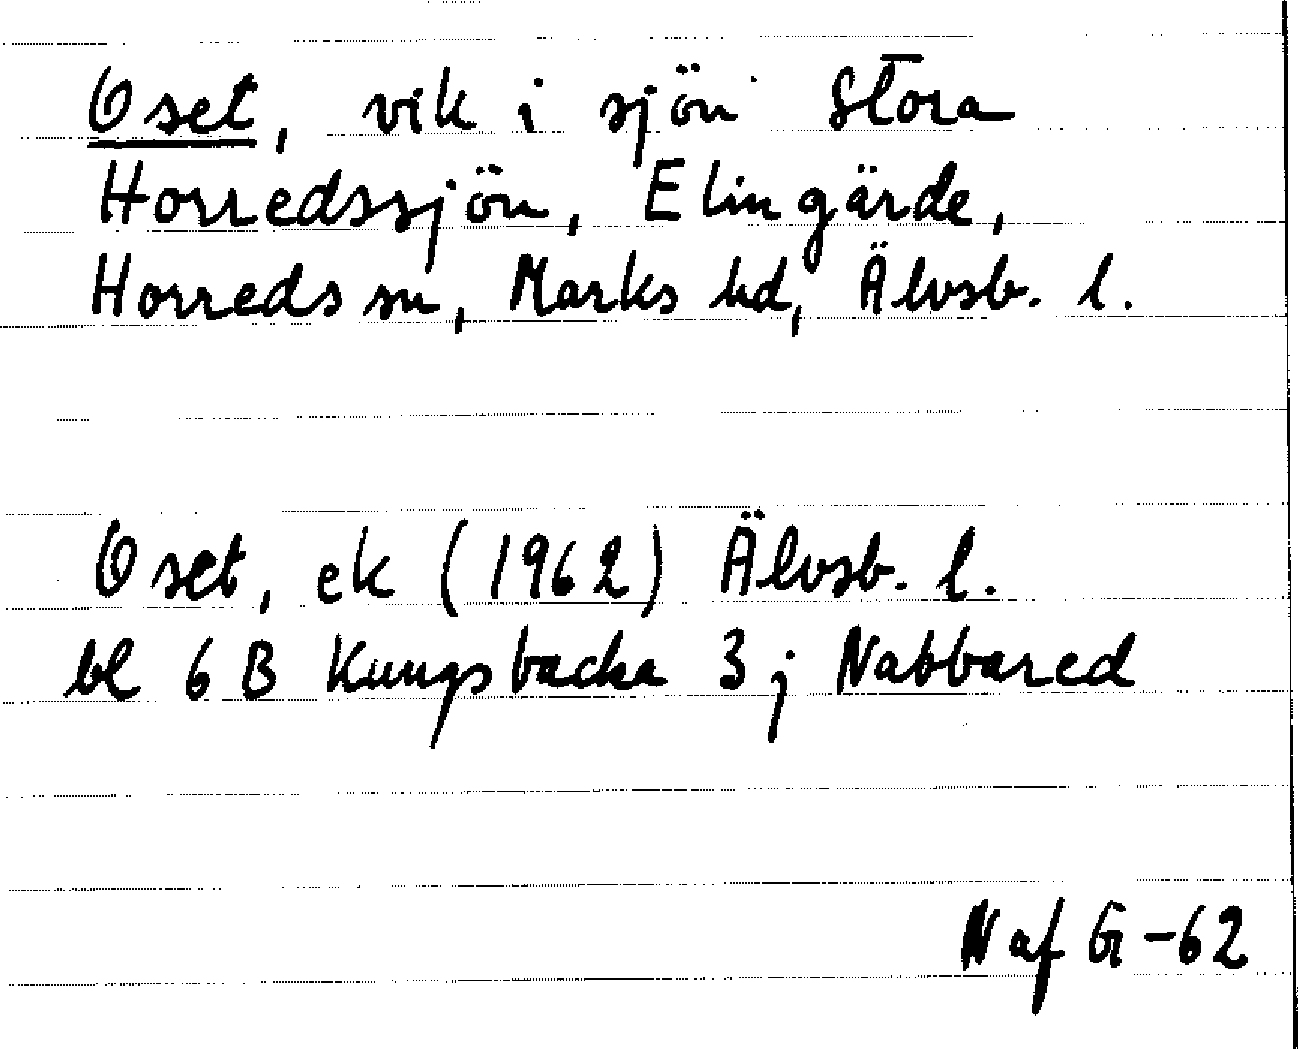 Oset, vik i sjön Stora
Horredssjön, Elingärde,
Horreds sn, Marks hd, Älvsb. l.
Oset, ek (1962) Älvsb. l.
bl 6 B Kungsbacka 3 j Nabbared
Naf G -62